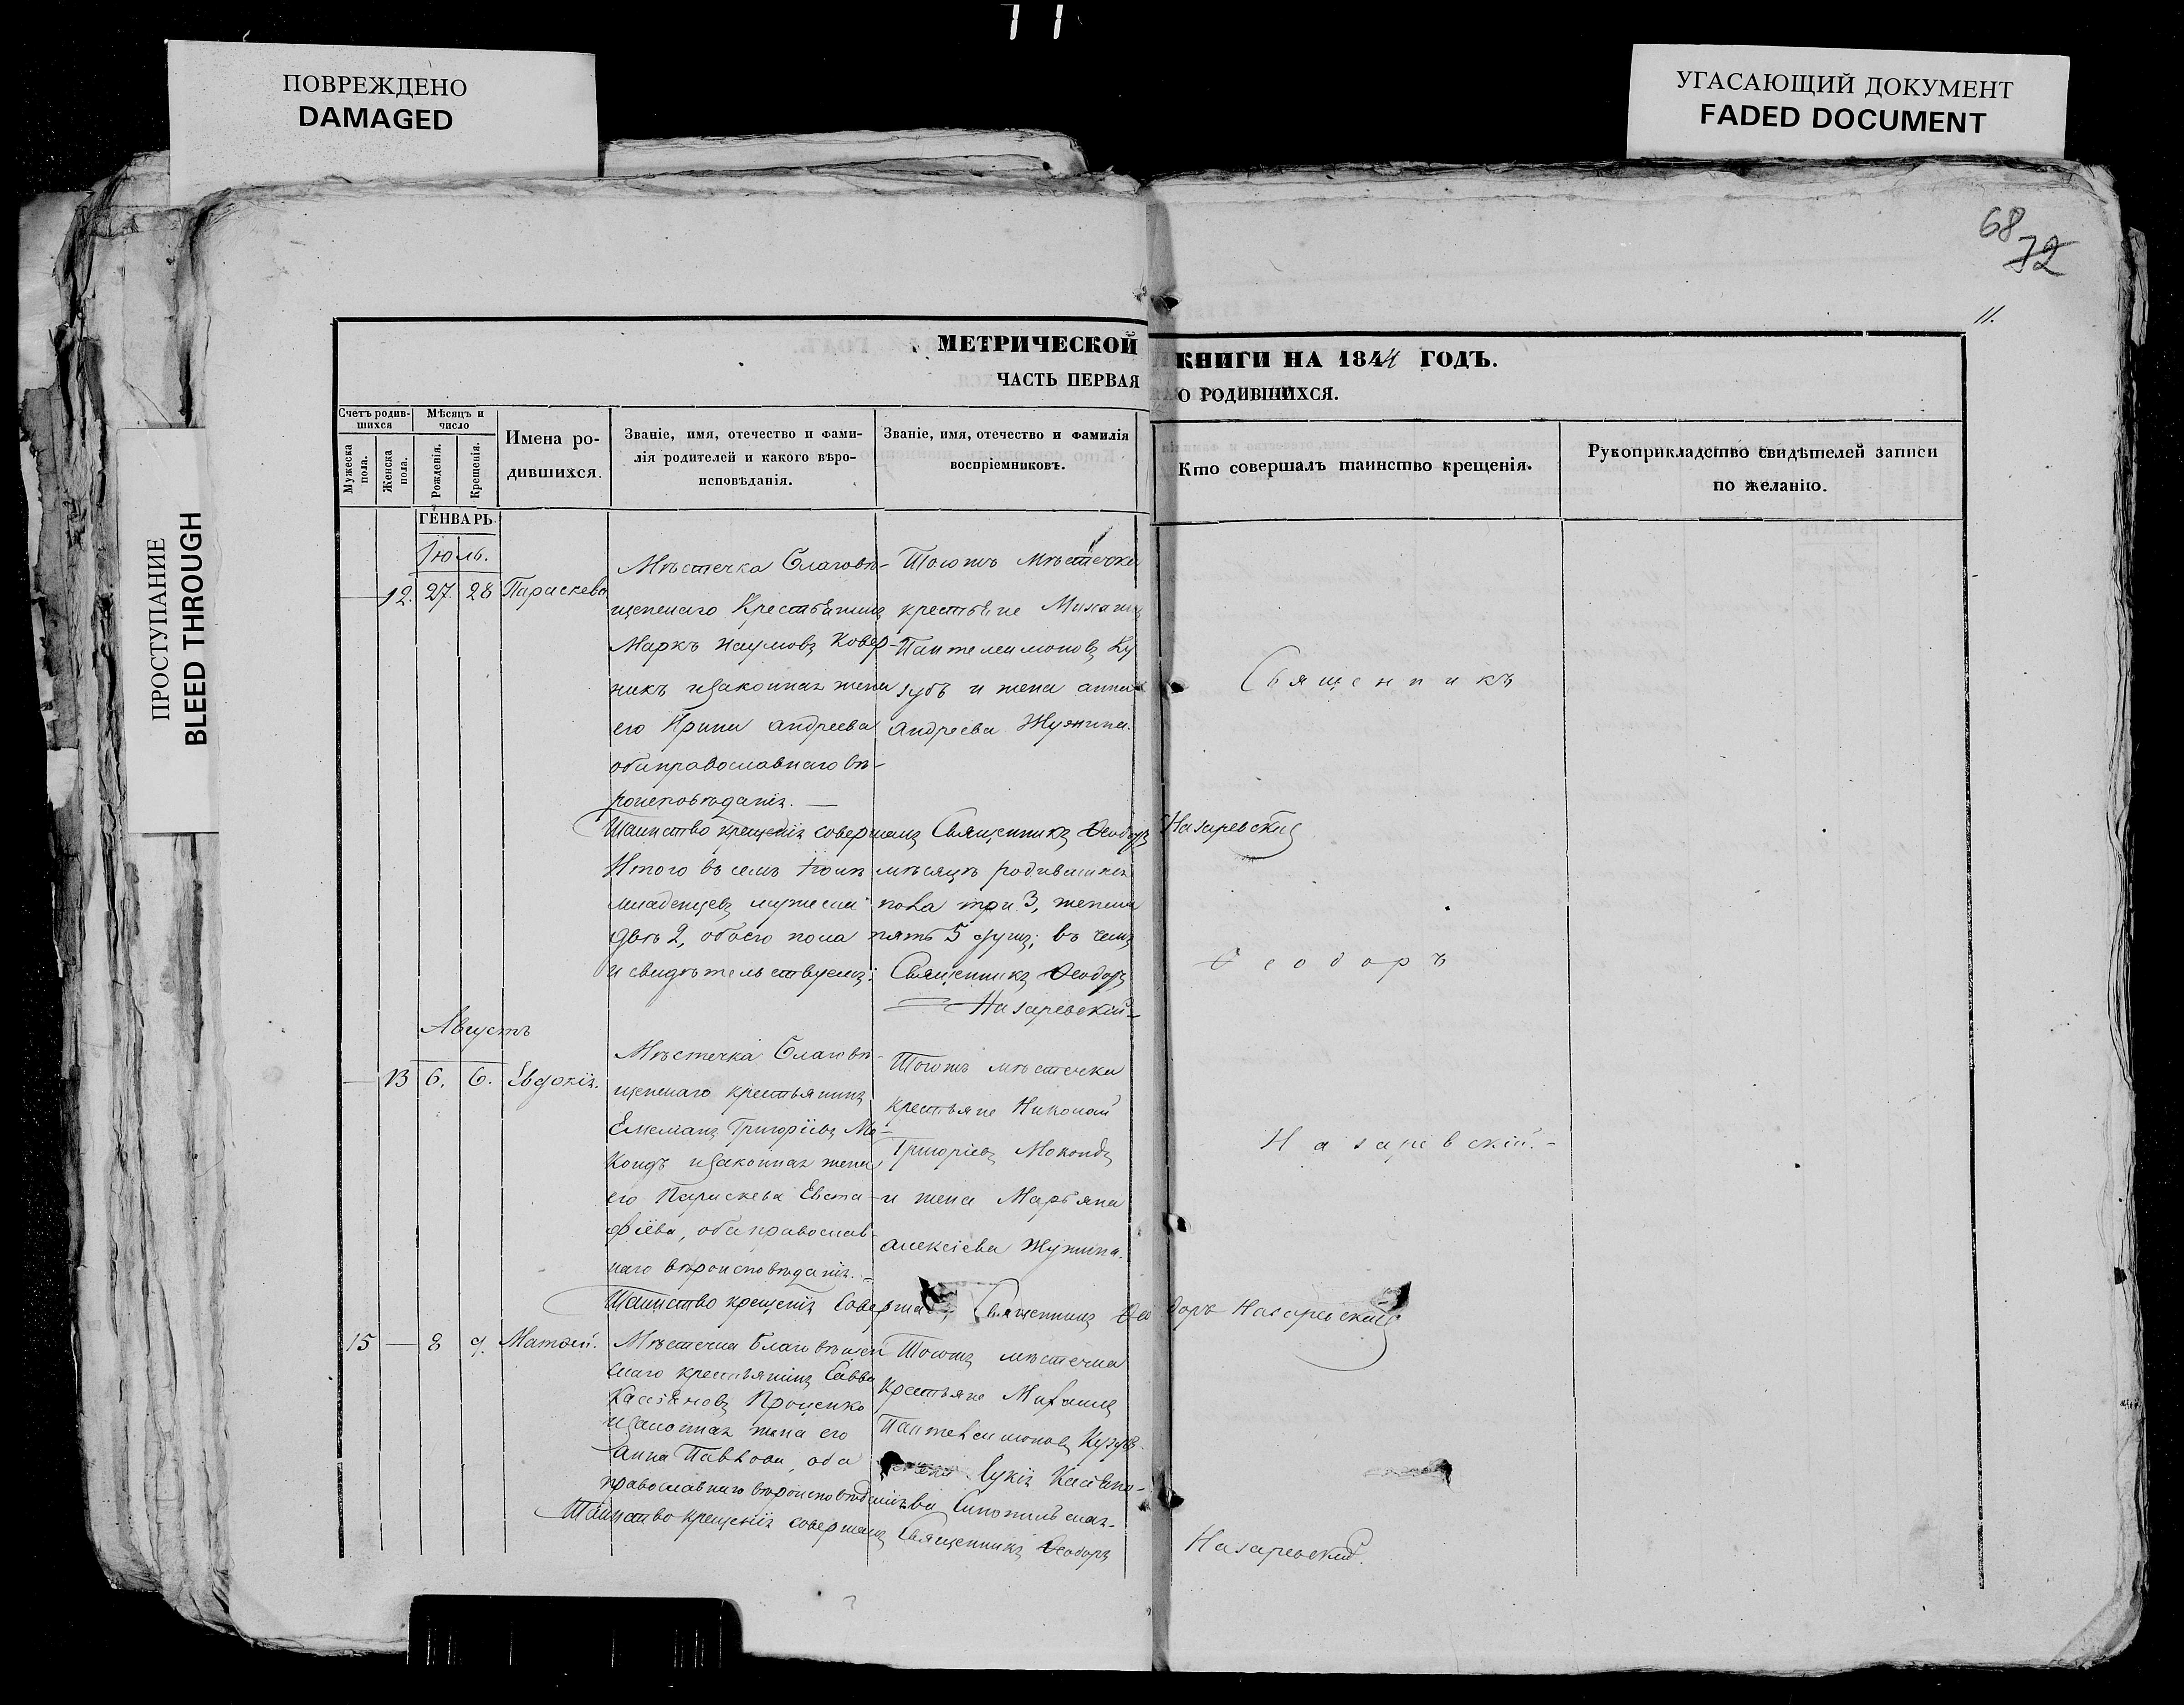 ПОВРЕЖДЕНО
DAMAGED
УГАСАЮЩИЙ ДОКУМЕНТ
FADED DOCUMENT
ПРОСТУПАНИЕ
BLEED THROUGH
68
72
11.
МЕТРИЧЕСКОЙ КНИГИ НА 1844 ГОДЪ.
ЧАСТЬ ПЕРВАЯ О РОДИВШИХСЯ.
Счетъ родив-
шихся
Мужеска
пола.
Женска
пола.
Мѣсяцъ и
число
Рожденія.
Крещенія.
Имена ро-
дившихся.
Званіе, имя, отечество и фами-
лія родителей и какого вѣро-
исповѣданія.
Званіе, имя, отечество и фамилія
воспріемниковъ.
Кто совершалъ таинство крещенія.
Рукоприкладство свидѣтелей записи
по желанію.
ГЕНВАРЬ
Іюль.
12. 27 28 Параскева
Мѣстечка Благовѣ-
щенскаго Крестьянинъ
Маркъ Наумовъ Ковер-
никъ и законная жена
его Ирина Андреева
оба православнаго вѣ-
роисповѣданія.
Тогожъ мѣстечка
крестьяне Михаилъ
Пантелеимоновъ Ку
зубъ и жена Анна
Андреева
Таинство крещенія совершалъ Священникъ Ѳеодоръ Назаревскій
Итого въ семъ Іюлѣ мѣсяцѣ родившихся
младенцевъ мужеска пола три 3, женска
двѣ 2, обоего пола пять 5 душъ; въ чемъ
и свидѣтельствуемъ: Священникъ Ѳеодоръ
Назаревскій
Священникъ
Ѳеодоръ
Назаревскій.
Августъ
13 6. 6. Евдокія.
Мѣстечка Благовѣ-
щенскаго крестьянинъ
Емеліанъ Григоріевъ Мо-
кондъ и законная жена
его Параскева Евста-
фіева, оба православ-
наго вѣроисповѣданія.
Тогожъ мѣстечка
крестьяне Николай
Григоріевъ Мокондъ
и жена Марьяна
Алексіева
Таинство крещенія совершалъ Священникъ Ѳеодоръ Назаревскій
15 — 8 9. Матѳей.
Мѣстечка Благовѣщен
скаго крестьянинъ Савва
Касіяновъ Проценко
и законная жена его
Анна Павлова, оба
православнаго вѣроисповѣданія
Тогожъ мѣстечка
Крестьяне Михаилъ
Пантелеимоновъ Кузубъ
Лукія Касіяно-
ва
Таинство крещенія совершалъ Священникъ Ѳеодоръ Назаревскій.